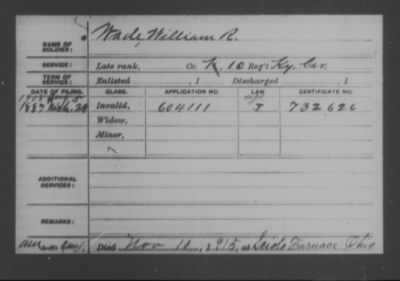 Wade, William R.
NAME OF SOLDIER:
SERVICE: Late rank, Co. K, 10 Reg't Ky. Cav.
TERM OF SERVICE: Enlisted , 1 Discharged , 1
DATE OF FILING. CLASS. APPLICATION NO. LAW. CERTIFICATE NO.
1887 Mch. 29 Invalid, 604111 J 732626
Widow,
Minor,
ADDITIONAL SERVICES:
REMARKS:
Died Nov 10, 1915, at Scioto Furnace Ohio